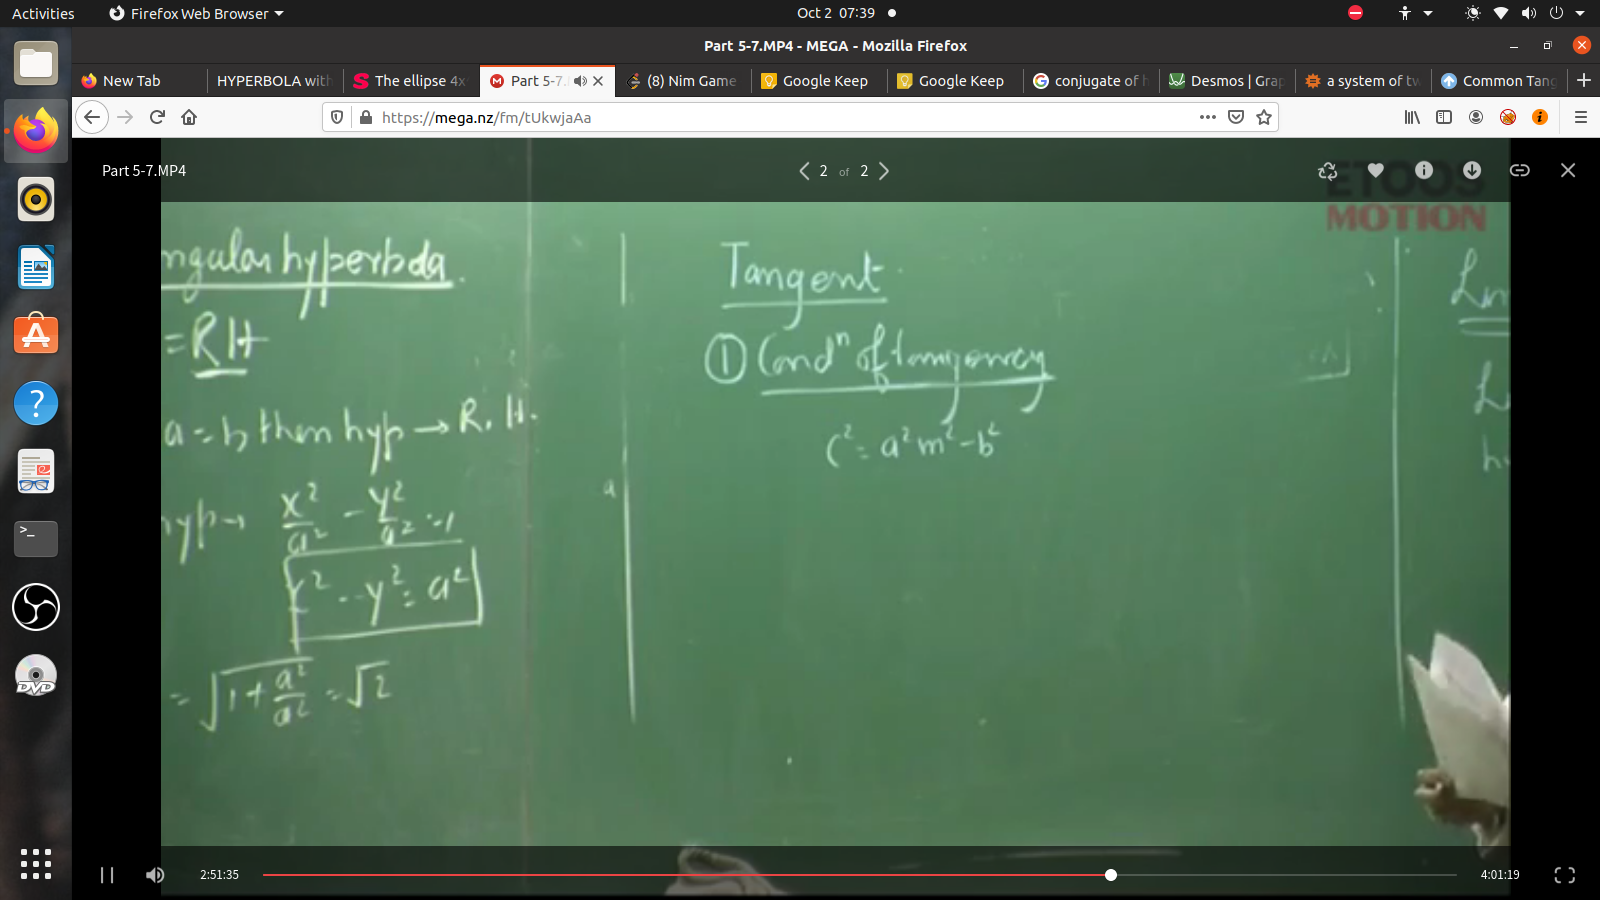 Activities
Firefox Web Browser
Oct 2 07:39
Part 5-7.MP4 - MEGA - Mozilla Firefox
New Tab
HYPERBOLA with
The ellipse 4x
Part 5-7.
(8) Nim Game
Google Keep
Google Keep
conjugate of h
Desmos | Grap
a system of tw
Common Tang
https://mega.nz/fm/tUkwjaAa
Part 5-7.MP4
2 of 2
ETOOS
MOTION
ngular hyperbola
= RH
a = b then hyp → R.H.
hyp → x²/a² - y²/a² = 1
x² - y² = a²
= √1 + a²/a² = √2
Tangent
① Condⁿ of tangency
c² = a²m² - b²
2:51:35
4:01:19
DVD